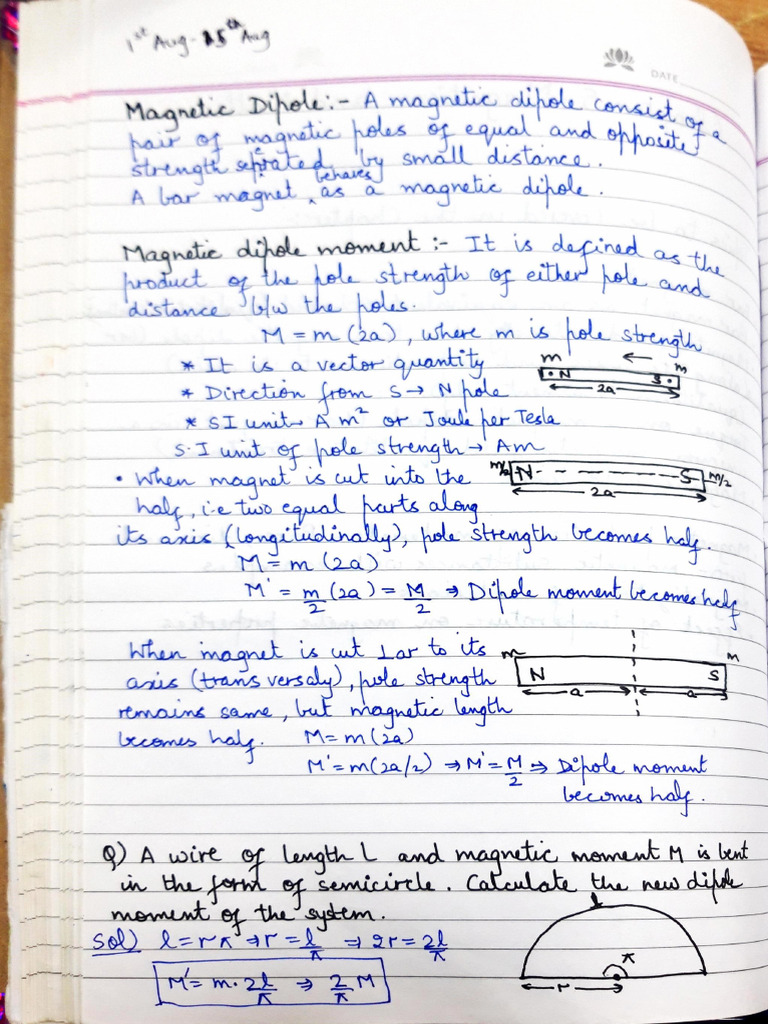 1st Aug - 15th Aug
DATE
Magnetic Dipole:- A magnetic dipole consist of a
pair of magnetic poles of equal and opposite
strength seperated by small distance.
A bar magnet behaves as a magnetic dipole.
Magnetic dipole moment :- It is defined as the
product of the pole strength of either pole and
distance b/w the poles.
M = m (2a), where m is pole strength
* It is a vector quantity
m ← m
N S
2a
* Direction from S → N pole
* SI unit → A m² or Joule per Tesla
S.I unit of pole strength → Am
• When magnet is cut into the
m/2 N S m/2
2a
half, i.e two equal parts along
its axis (longitudinally), pole strength becomes half.
M = m (2a)
M' = m/2 (2a) = M/2 ⇒ Dipole moment becomes half
When magnet is cut ⊥ar to its
m m
N S
a a
axis (transversaly), pole strength
remains same, but magnetic length
becomes half. M = m(2a)
M' = m(2a/2) ⇒ M' = M/2 ⇒ Dipole moment
becomes half.
Q) A wire of length L and magnetic moment M is bent
in the form of semicircle. Calculate the new dipole
moment of the system.
l
Sol) l = rπ ⇒ r = l/π ⇒ 2r = 2l/π
π
r
M' = m · 2l/π ⇒ 2/π M